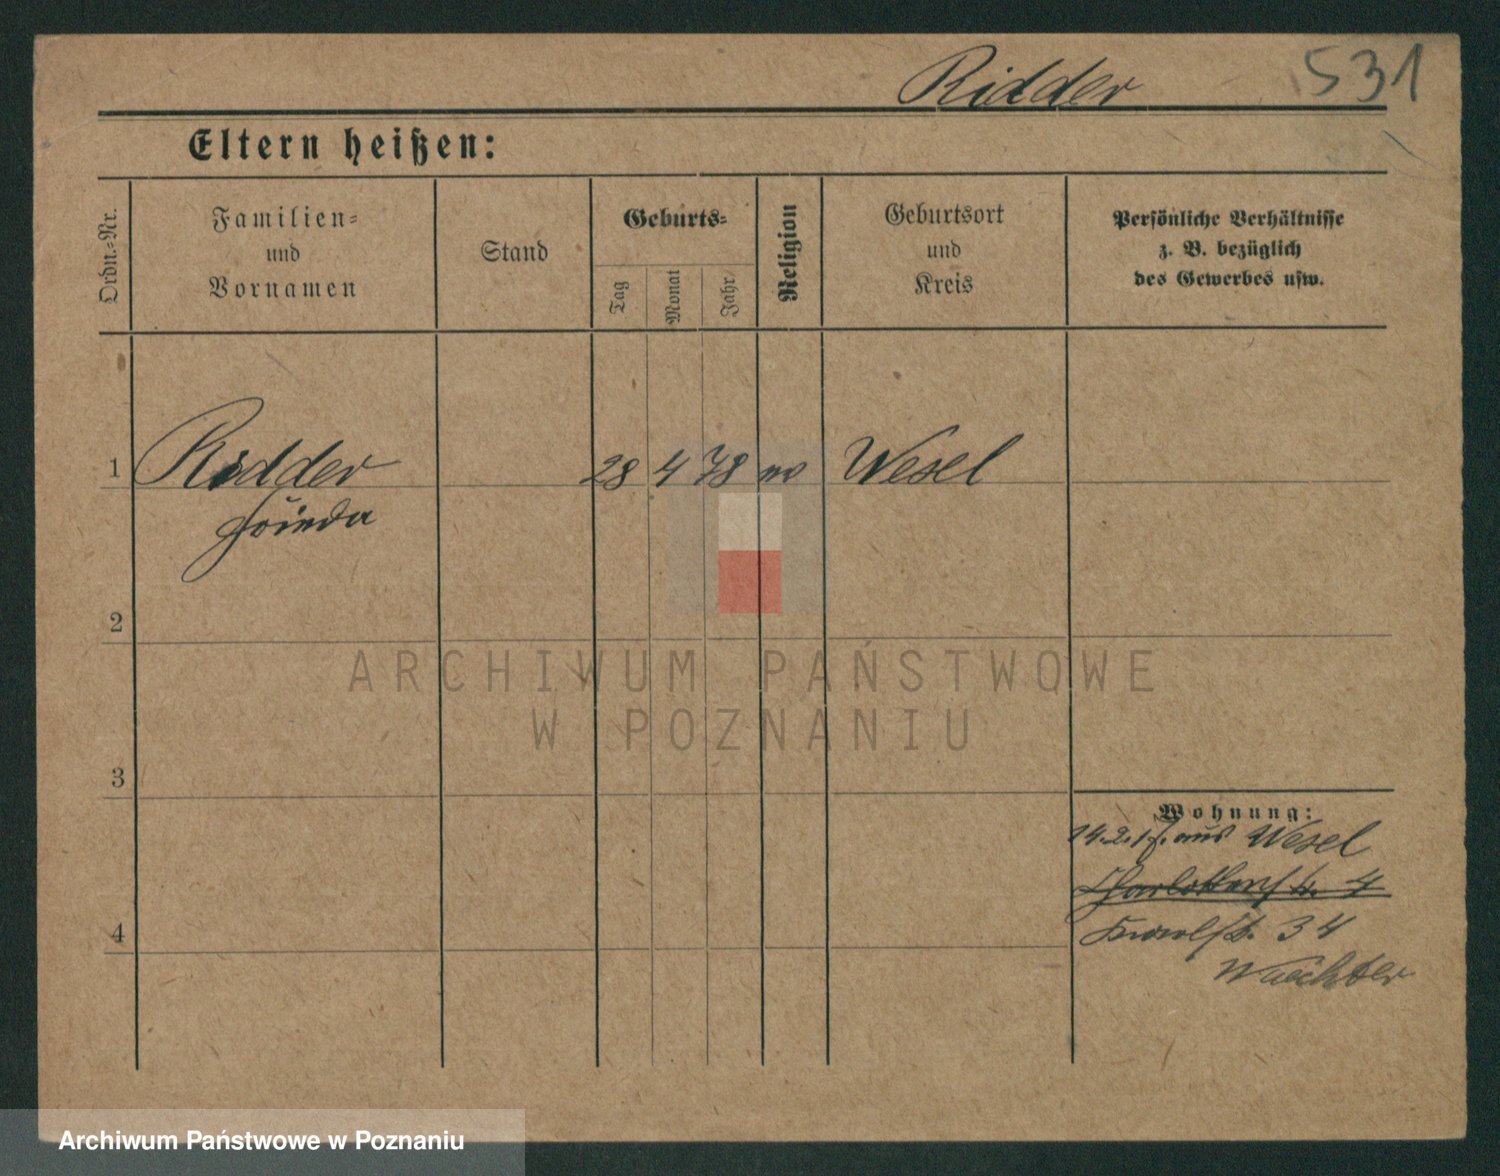 Ridder 531
Eltern heißen:
Ordn.-Nr.
Familien-
und
Vornamen
Stand
Geburts-
Tag
Monat
Jahr
Religion
Geburtsort
und
Kreis
Persönliche Verhältnisse
z. B. bezüglich
des Gewerbes usw.
1 Ridder 28 4 78 Wesel
Frieda
2
3
4
Wohnung:
14.2.17. aus Wesel
Charlottenstr. 4
34
Waechter
ARCHIWUM PAŃSTWOWE
W POZNANIU
Archiwum Państwowe w Poznaniu